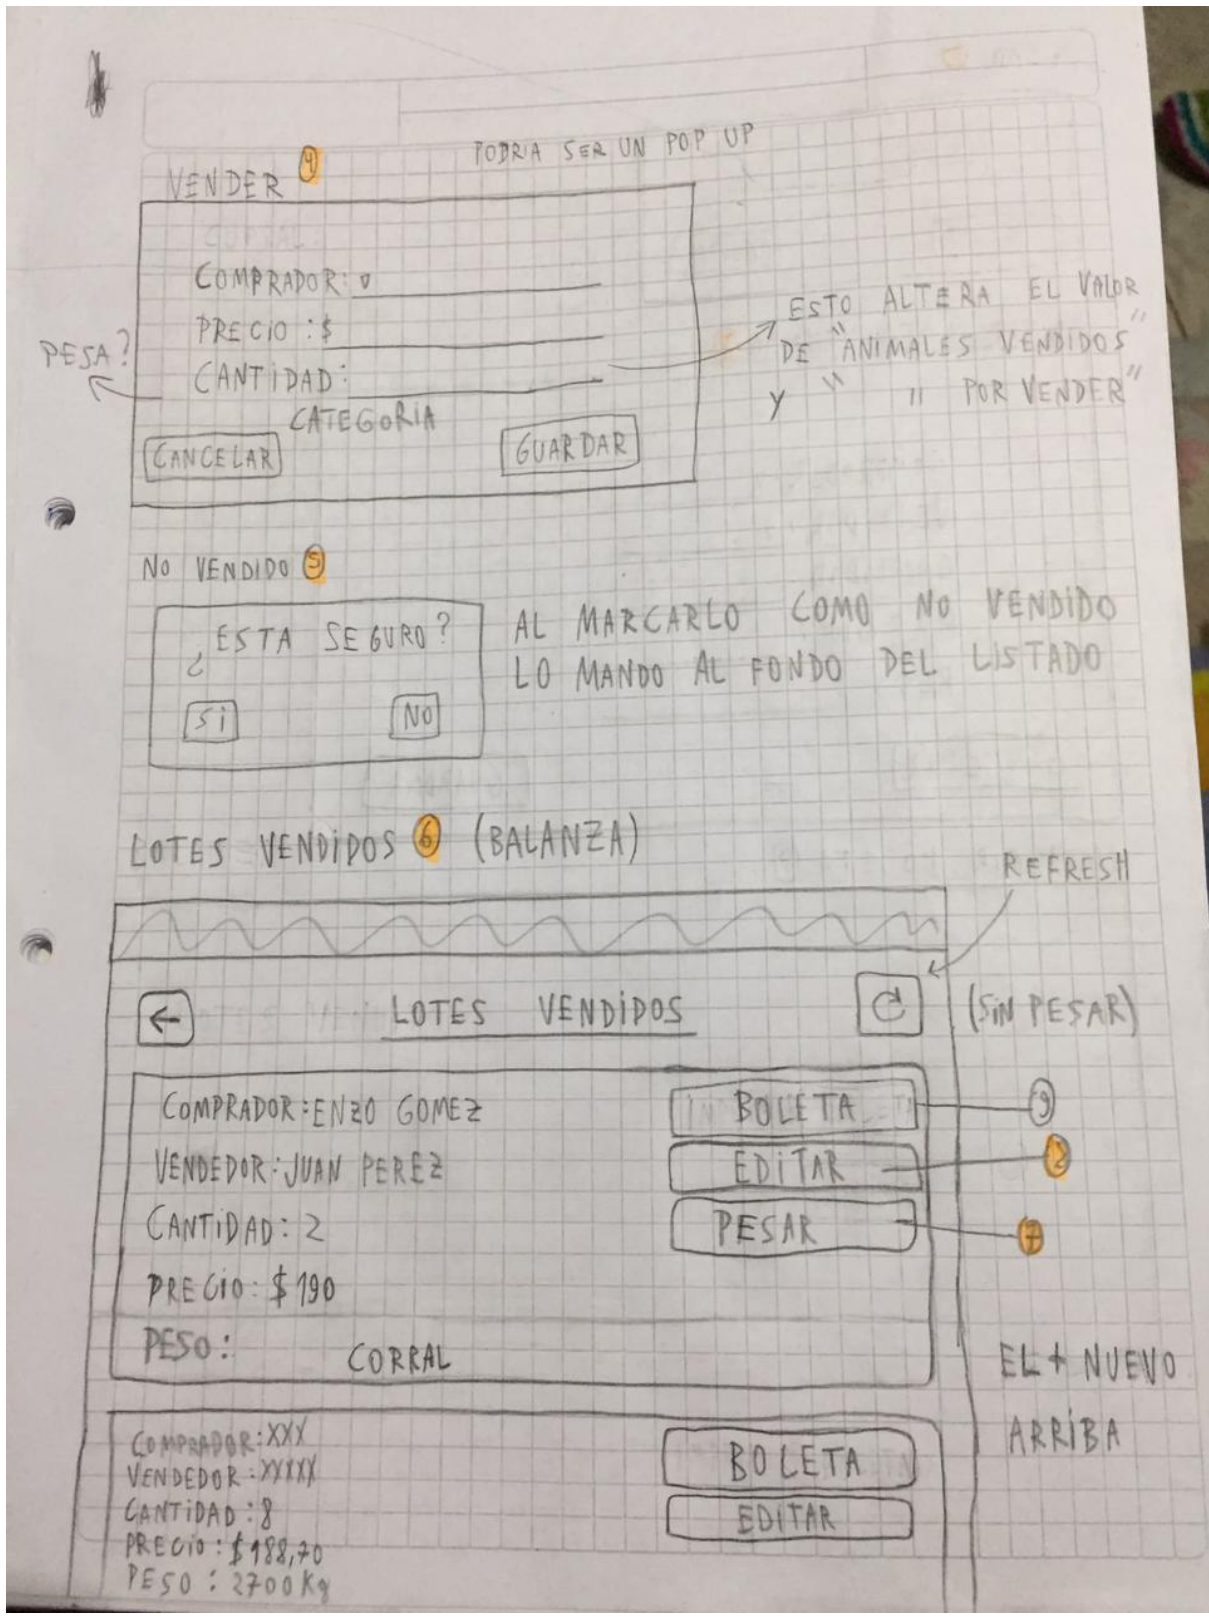 PODRIA SER UN POP UP
VENDER 4
COMPRADOR:
PRECIO : $
CANTIDAD:
CATEGORIA
CANCELAR
GUARDAR
PESA?
ESTO ALTERA EL VALOR
DE "ANIMALES VENDIDOS"
Y " " POR VENDER"
NO VENDIDO 5
¿ESTA SEGURO?
SI
NO
AL MARCARLO COMO NO VENDIDO
LO MANDO AL FONDO DEL LISTADO
LOTES VENDIDOS 6 (BALANZA)
REFRESH
←
LOTES VENDIDOS
(SIN PESAR)
COMPRADOR: ENZO GOMEZ
BOLETA
9
VENDEDOR: JUAN PEREZ
EDITAR
CANTIDAD: 2
PESAR
7
PRECIO: $190
PESO:
CORRAL
EL + NUEVO
ARRIBA
COMPRADOR: XXX
VENDEDOR: XXXXX
CANTIDAD: 8
PRECIO: $188,70
PESO: 2700 Kg
BOLETA
EDITAR